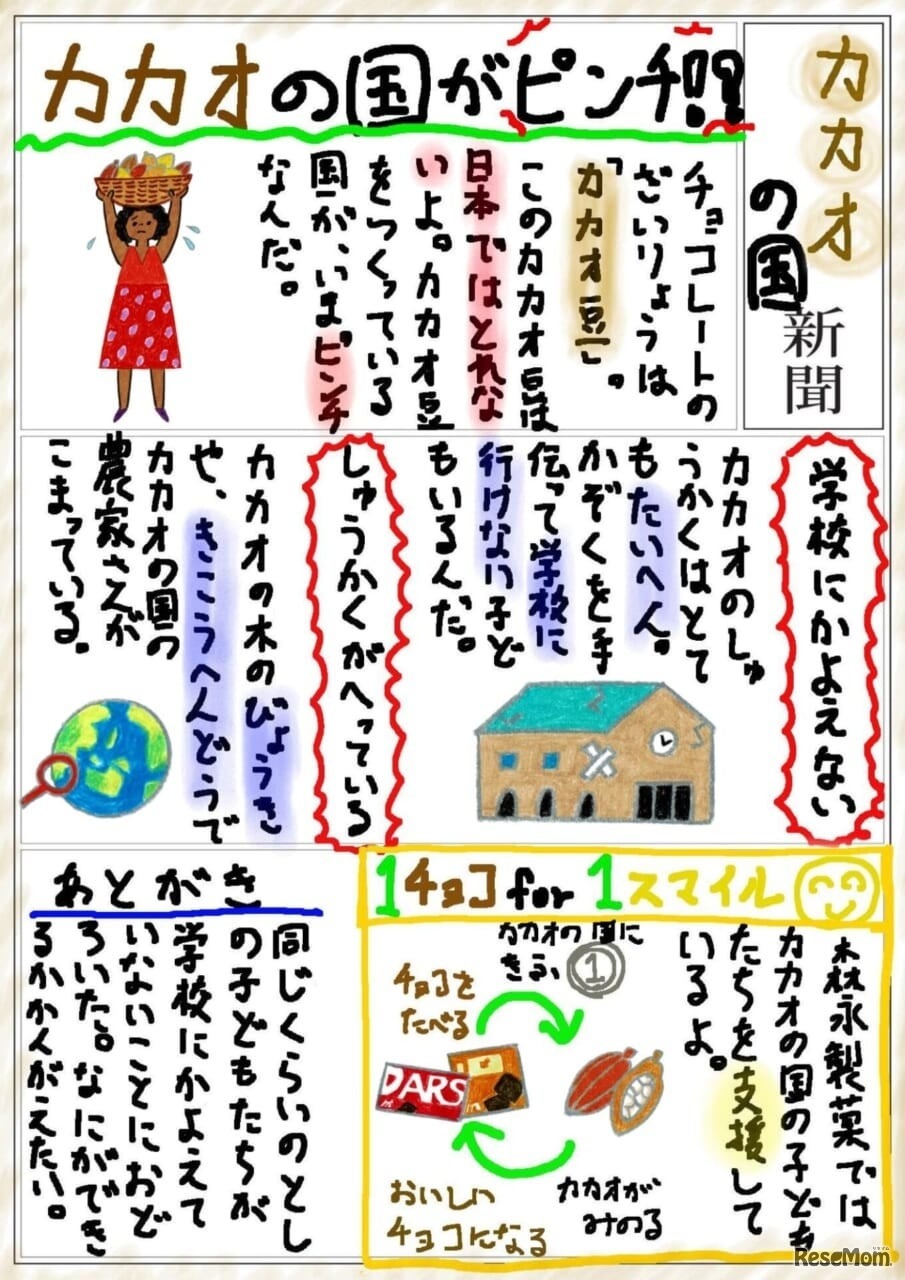 カカオ
の国
新聞
カカオの国がピンチ!?
チョコレートの
ざいりょうは
「カカオ豆」。
このカカオ豆は
日本ではとれな
いよ。カカオ豆
をつくっている
国が、いま、ピンチ
なんだ。
学校にかよえない
カカオのしゅ
うかくはとて
もたいへん。
かぞくを手
伝って学校に
行けない子ど
もいるんだ。
しゅうかくがへっている
カカオの木のびょうき
や、きこうへんどうで
カカオの国の
農家さんが
こまっている。
1チョコ for 1スマイル
森永製菓では
カカオの国の子ども
たちを支援して
いるよ。
カカオの国に
きふ
1
チョコを
たべる
DARS
カカオが
みのる
おいしい
チョコになる
あとがき
同じくらいのとし
の子どもたちが
学校にかよえて
いないことにおど
ろいた。なにができ
るかかんがえたい。
ReseMom
リセマム